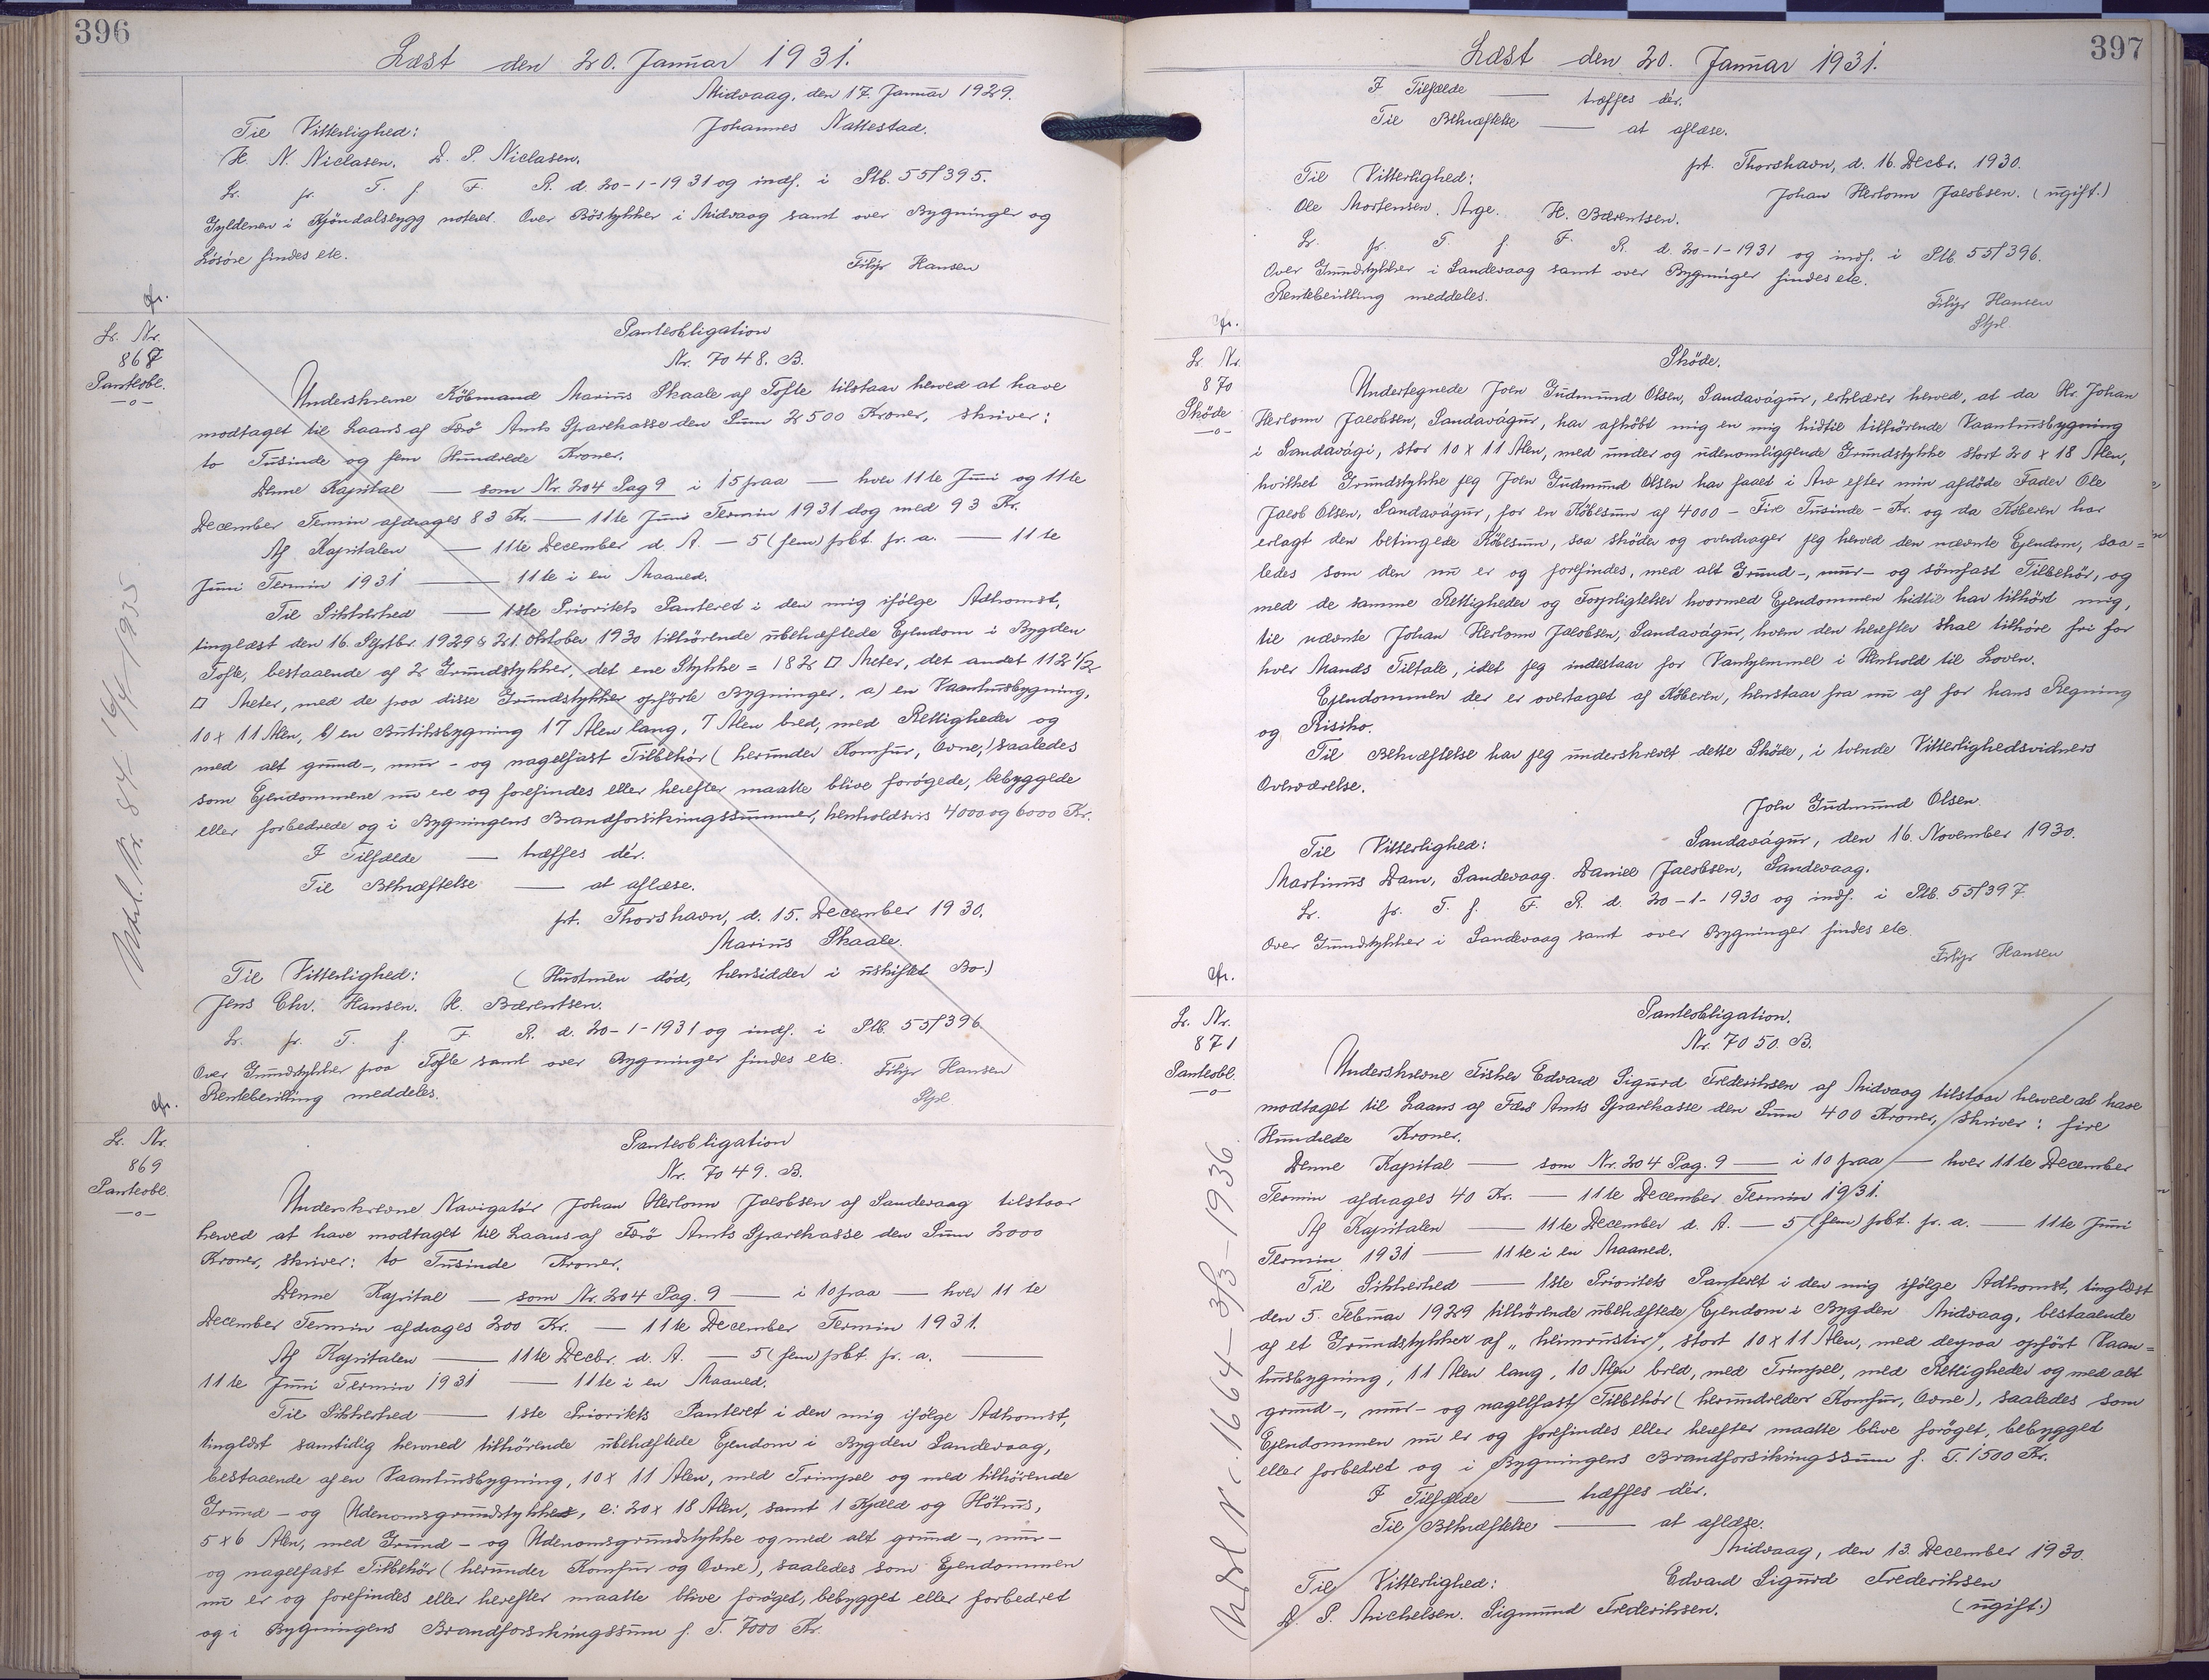 396
Læst den 20. Januar 1931.
Midvaag, den 17. Januar 1929.
Til Vitterlighed: Johannes Nattestad.
H. N. Niclasen. D. P. Niclasen.
Lr. fr. T. f. F. R. d. 20-1-1931 og indf. i Ptb. 55/395.
Gyldenen i Kjöndalsbygg noteret. Over Böstykker i Midvaag samt over Bygninger og
Lösöre findes etc.
Filip Hansen
Lr. Nr.
868
Panteobl.
Pantobligation
Nr. 7048. B.
Underskrevne Köbmand Marius Skaale af Tofte tilstaar herved at have
modtaget til Laans af Færö Amts Sparekasse den Sum 2500 Kroner, skriver:
to Tusinde og fem Hundrede Kroner.
Denne Kapital — som Nr. 204 Pag 9 i 15 paa — hver 11te Juni og 11te
December Termin afdrages 83 Kr. — 11te Juni Termin 1931 dog med 93 Kr.
Af Kapitalen — 11te December d. A. — 5 (fem) pbt. pr. a. — 11te
Juni Termin 1931 — 11te i en Maaned.
Til Sikkerhed — 1ste Prioritets Panteret i den mig ifölge Adkomst,
tinglæst den 16. Septbr. 1929 & 21. Oktober 1930 tilhörende ubehæftede Ejendom i Bygden
Tofte, bestaaende af 2 Grundstykker, det ene Stykke = 182 □ Meter, det andet 112 1/2
□ Meter, med de paa disse Grundstykker opförte Bygninger. a) en Vaanhusbygning,
10 x 11 Alen, b) en Butiksbygning 17 Alen lang, 7 Alen bred, med Rettigheder og
med alt grund-, mur- og nagelfast Tilbehör (herunder Komfur, Ovne,) saaledes
som Ejendommene nu ere og forefindes eller herefter maatte blive forögede, bebyggede
eller forbedrede og i Bygningens Brandforsikringssummer, henholdsvis 4000 og 6000 Kr.
I Tilfælde — træffes dér.
Til Bekræftelse — at aflæse.
pt. Thorshavn, d. 15. December 1930.
Marius Skaale.
Til Vitterlighed: (Hustruen död, hensidder i uskiftet Bo.)
Jens Chr. Hansen. H. Bærentsen.
Lr. fr. T. f. F. R. d. 20-1-1931 og indf. i Ptb. 55/396.
Over Grundstykker paa Tofte samt over Bygninger findes etc.
Rentebevilling meddeles.
Filip Hansen
Stpl.
Udsl. Nr. 84 - 16/4 - 1935
Lr. Nr.
869
Panteobl.
Panteobligation
Nr. 7049. B.
Underskrevne Navigatör Johan Herlonn Jacobsen af Sandevaag tilstaar
herved at have modtaget til Laans af Færö Amts Sparekasse den Sum 2000
Kroner, skriver: to Tusinde Kroner.
Denne Kapital — som Nr. 204 Pag. 9 — i 10 paa — hver 11te
December Termin afdrages 200 Kr. — 11te December Termin 1931.
Af Kapitalen — 11te Decbr. d. A. — 5 (fem) pbt. pr. a. —
11te Juni Termin 1931 — 11te i en Maaned.
Til Sikkerhed — 1ste Prioritets Panteret i den mig ifölge Adkomst,
tinglæst samtidig hermed tilhörende ubehæftede Ejendom i Bygden Sandevaag,
bestaaende af en Vaanhusbygning, 10 x 11 Alen, med Trimpel og med tilhörende
Grund- og Udenomsgrundstykke, c: 20 x 18 Alen, samt 1 Kjæld og Höhus,
5 x 6 Alen, med Grund- og Udenomsgrundstykke og med alt grund-, mur-
og nagelfast Tilbehör (herunder Komfur og Ovne), saaledes som Ejendommen
nu er og forefindes eller herefter maatte blive foröget, bebygget eller forbedret
og i Bygningens Brandforsikringssum f. T. 7000 Kr.
397
Læst den 20. Januar 1931.
I Tilfælde — træffes dér.
Til Bekræftelse — at aflæse.
pt. Thorshavn, d. 16. Decbr. 1930.
Til Vitterlighed: Johan Herlonn Jacobsen. (ugift.)
Ole Mortensen. Arge. H. Bærentsen.
Lr. fr. T. f. F. R. d. 20-1-1931 og indf. i Ptb. 55/396.
Over Grundstykker i Sandevaag samt over Bygninger findes etc.
Rentebevilling meddeles.
Filip Hansen
Stpl.
Lr. Nr.
870
Sköde
Sköde.
Undertegnede Joen Gudmund Olsen, Sandavágur, erklærer herved, at da Hr. Johan
Herlonn Jacobsen, Sandavágur, har afköbt mig en mig hidtil tilhörende Vaanhusbygning
i Sandavági, stor 10 x 11 Alen, med under og udenomliggende Grundstykke stort 20 x 18 Alen,
hvilket Grundstykke jeg Joen Gudmund Olsen har faaet i Arv efter min afdöde Fader Ole
Jacob Olsen, Sandavágur, for en Köbesum af 4000 - Fire Tusinde - Kr. og da Köberen har
erlagt den betingede Köbesum, saa sköder og overdrager jeg herved den nævnte Ejendom, saa=
ledes som den nu er og forefindes, med alt Grund-, mur- og sömfast Tilbehör, og
med de samme Rettigheder og Forpligtelser hvormed Ejendommen hidtil har tilhört mig,
til nævnte Johan Herlonn Jacobsen, Sandavágur, hvem den herefter skal tilhöre fri for
hver Mands Tiltale, idet jeg indestaar for Vanhjemmel i Henhold til Loven.
Ejendommen der er overtaget af Köberen, henstaar fra nu af for hans Regning
og Risiko.
Til Bekræftelse har jeg underskrevet dette Sköde, i tvende Vitterlighedsvidners
Overværelse.
Joen Gudmund Olsen.
Til Vitterlighed: Sandavágur, den 16. November 1930.
Martinus Dam, Sandevaag. Daniel Jacobsen, Sandevaag.
Lr. fr. T. f. F. R. d. 20-1-1930 og indf. i Ptb. 55/397.
Over Grundstykker i Sandevaag samt over Bygninger findes etc.
Filip Hansen
Lr. Nr.
871
Panteobl.
Panteobligation.
Nr. 7050. B.
Underskrevne Fisker Edvard Sigurd Frederiksen af Midvaag tilstaar herved at have
modtaget til Laans af Færö Amts Sparekasse den Sum 400 Kroner, skriver: fire
Hundrede Kroner.
Denne Kapital — som Nr. 204 Pag. 9 — i 10 paa — hver 11te December
Termin afdrages 40 Kr. — 11te December Termin 1931.
Af Kapitalen — 11te December d. A. — 5 (fem) pbt. pr. a. — 11te Juni
Termin 1931 — 11te i en Maaned.
Til Sikkerhed — 1ste Prioritets Panteret i den mig ifölge Adkomst, tinglæst
den 5. Februar 1929 tilhörende ubehæftede Ejendom i Bygden Midvaag, bestaaende
af et Grundstykker af „heimrustir“, stort 10 x 11 Alen, med derpaa opfört Vaan=
husbygning, 11 Alen lang, 10 Alen bred, med Trimpel, med Rettigheder og med alt
grund-, mur- og nagelfast Tilbehör (herundreder Komfur, Ovne), saaledes som
Ejendommen nu er og forefindes eller herefter maatte blive foröget, bebygget
eller forbedret og i Bygningens Brandforsikringssum f. T. 1500 Kr.
I Tilfælde — træffes dér.
Til Bekræftelse — at aflæse.
Midvaag, den 13. December 1930.
Til Vitterlighed: Edvard Sigurd Frederiksen
D. P. Michelsen. Sigmund Frederiksen. (ugift.)
Udsl. Nr. 1664 - 3/3 - 1936